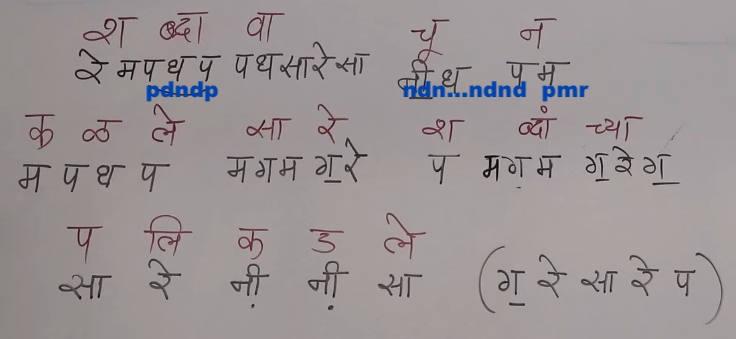 श ब्दा वा चू न
रे म प ध प प ध सा रे सा नी॒ ध प म
pdndp ndn...ndnd pmr
क ळ ले सा रे श ब्दां च्या
म प ध प म ग म ग॒ रे प म ग म ग॒ रे ग॒
प लि क ड ले
सा रे नी़ नी़ सा (ग॒ रे सा रे प)